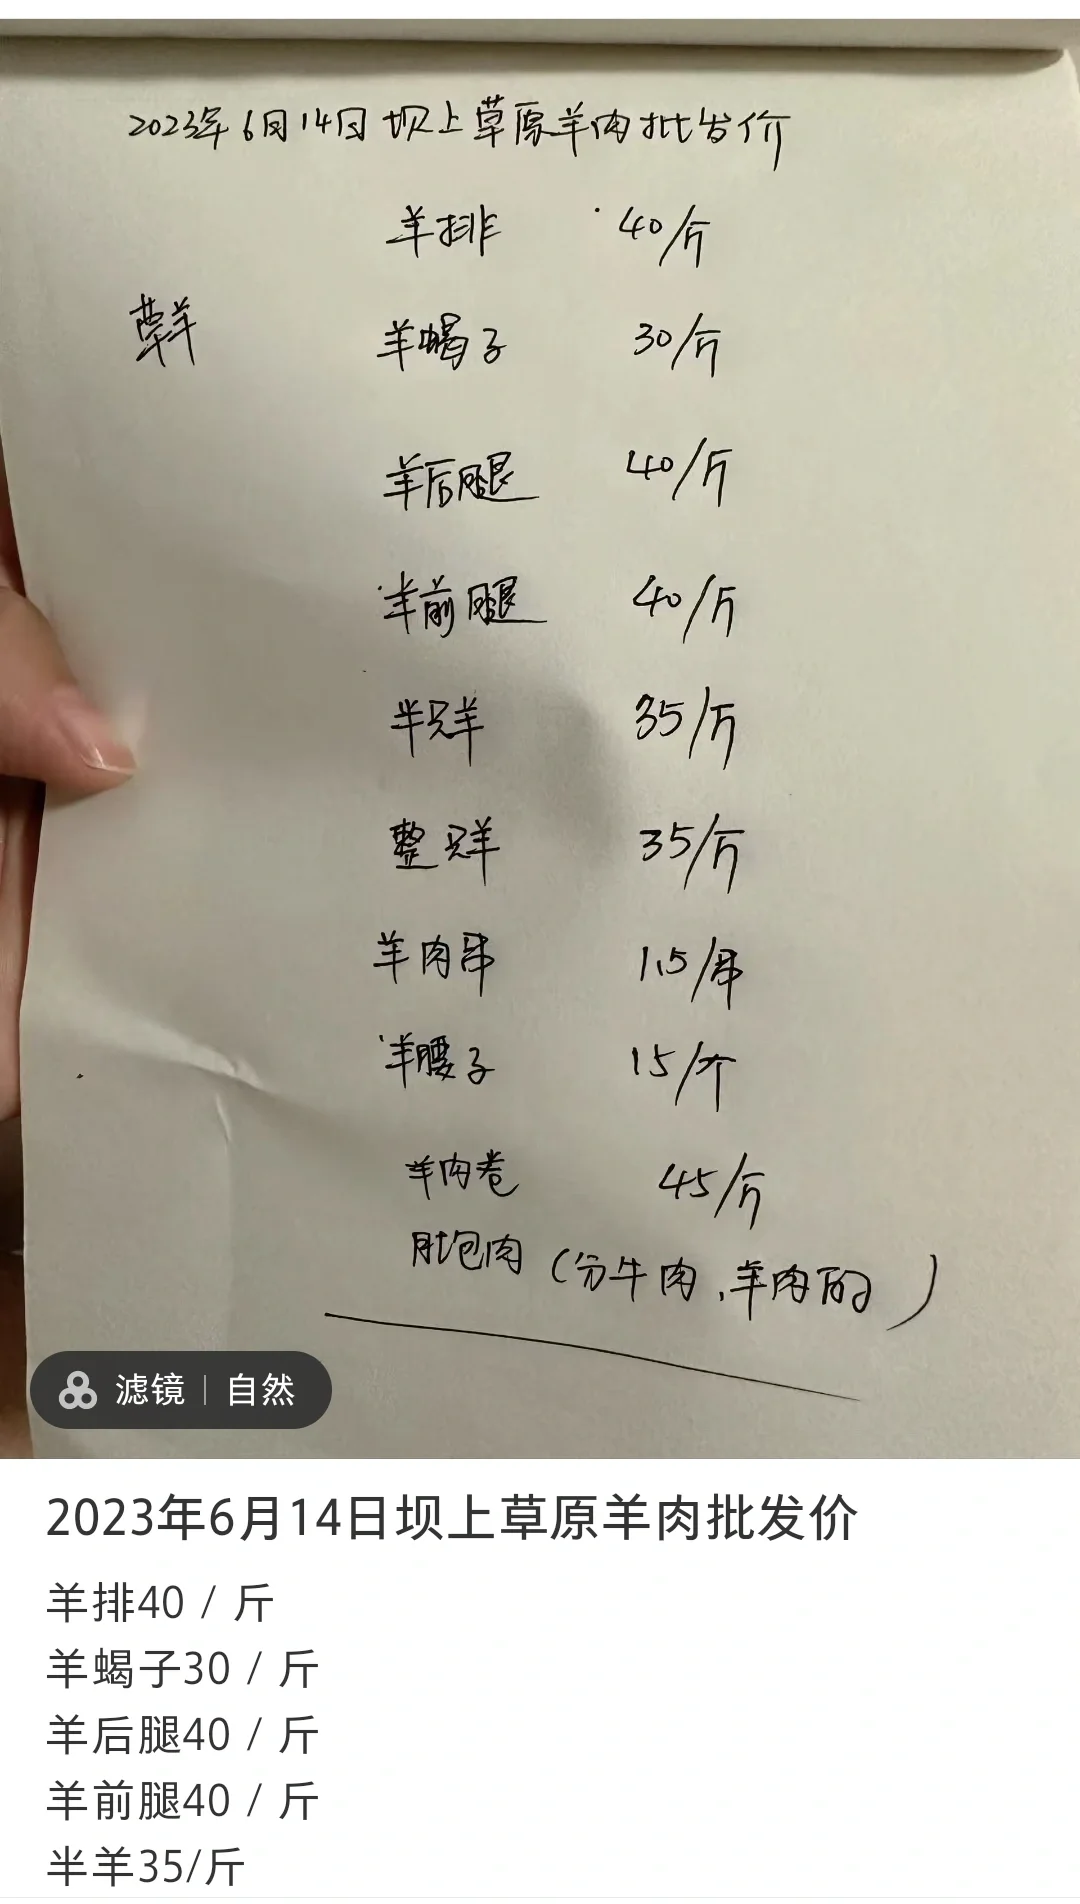 2023年6月14日坝上草原羊肉批发价
羊排 40/斤
草羊
羊蝎子 30/斤
羊后腿 40/斤
羊前腿 40/斤
半只羊 35/斤
整只羊 35/斤
羊肉串 1.5/串
羊腰子 15/个
羊肉卷 45/斤
肚包肉(分牛肉、羊肉的)
滤镜 | 自然
2023年6月14日坝上草原羊肉批发价
羊排40 / 斤
羊蝎子30 / 斤
羊后腿40 / 斤
羊前腿40 / 斤
半羊35/斤